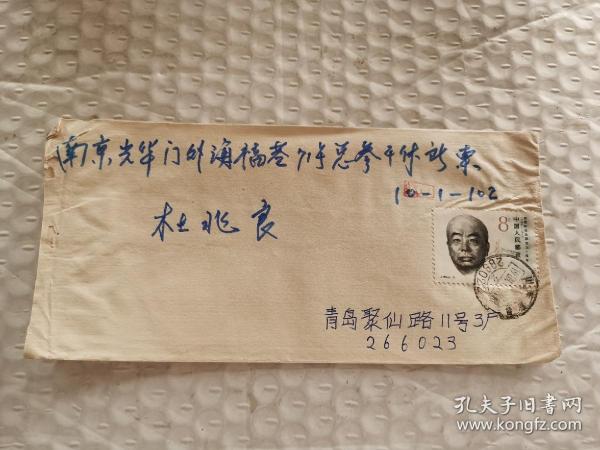 南京光华门外海福巷71号总参干休所东
10-1-102
杜兆良
8
中国人民邮政
青岛聚仙路11号3户
266023
孔夫子旧书网
www.kongfz.com